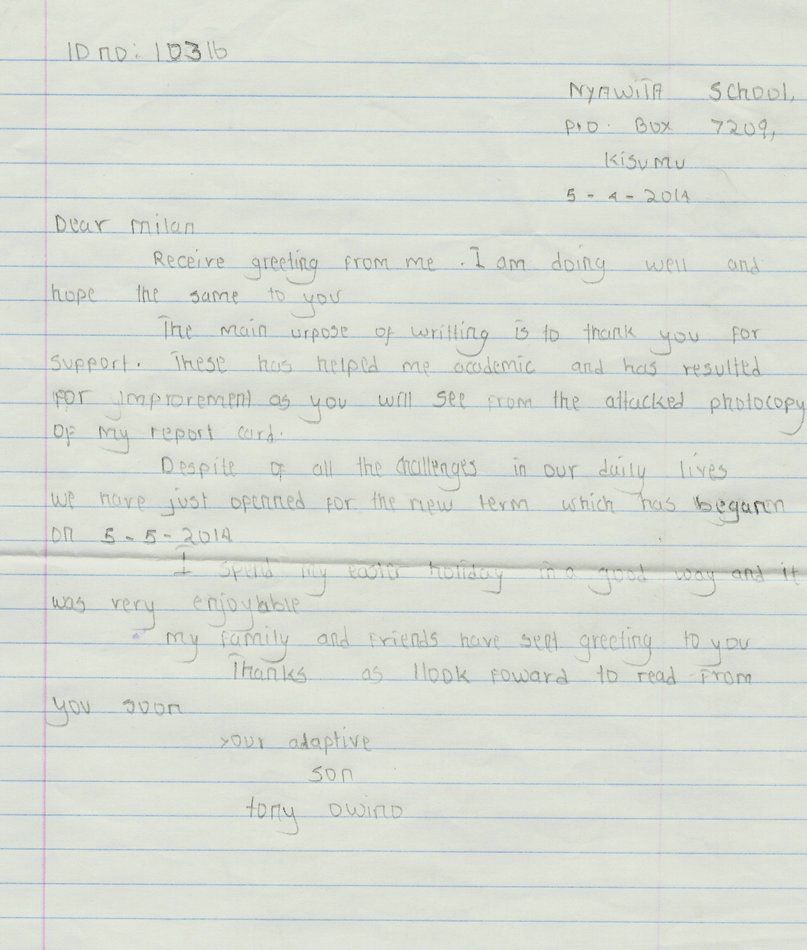 ID no: 10316
Nyawita School,
P.O. Box 7209,
Kisumu
5-4-2014
Dear milan
Receive greeting from me. I am doing well and
hope the same to you
The main urpose of writting is to thank you for
support. These has helped me academic and has resulted
for improrement as you will see from the attacked photocopy
of my report card.
Despite of all the challenges in our daily lives
we have just openned for the new term which has begann
on 5-5-2014
I spend my easter holiday in a good way and it
was very enjoyable
my family and friends have sent greeting to you
Thanks as I look foward to read from
you soon
your adaptive
son
tony owino